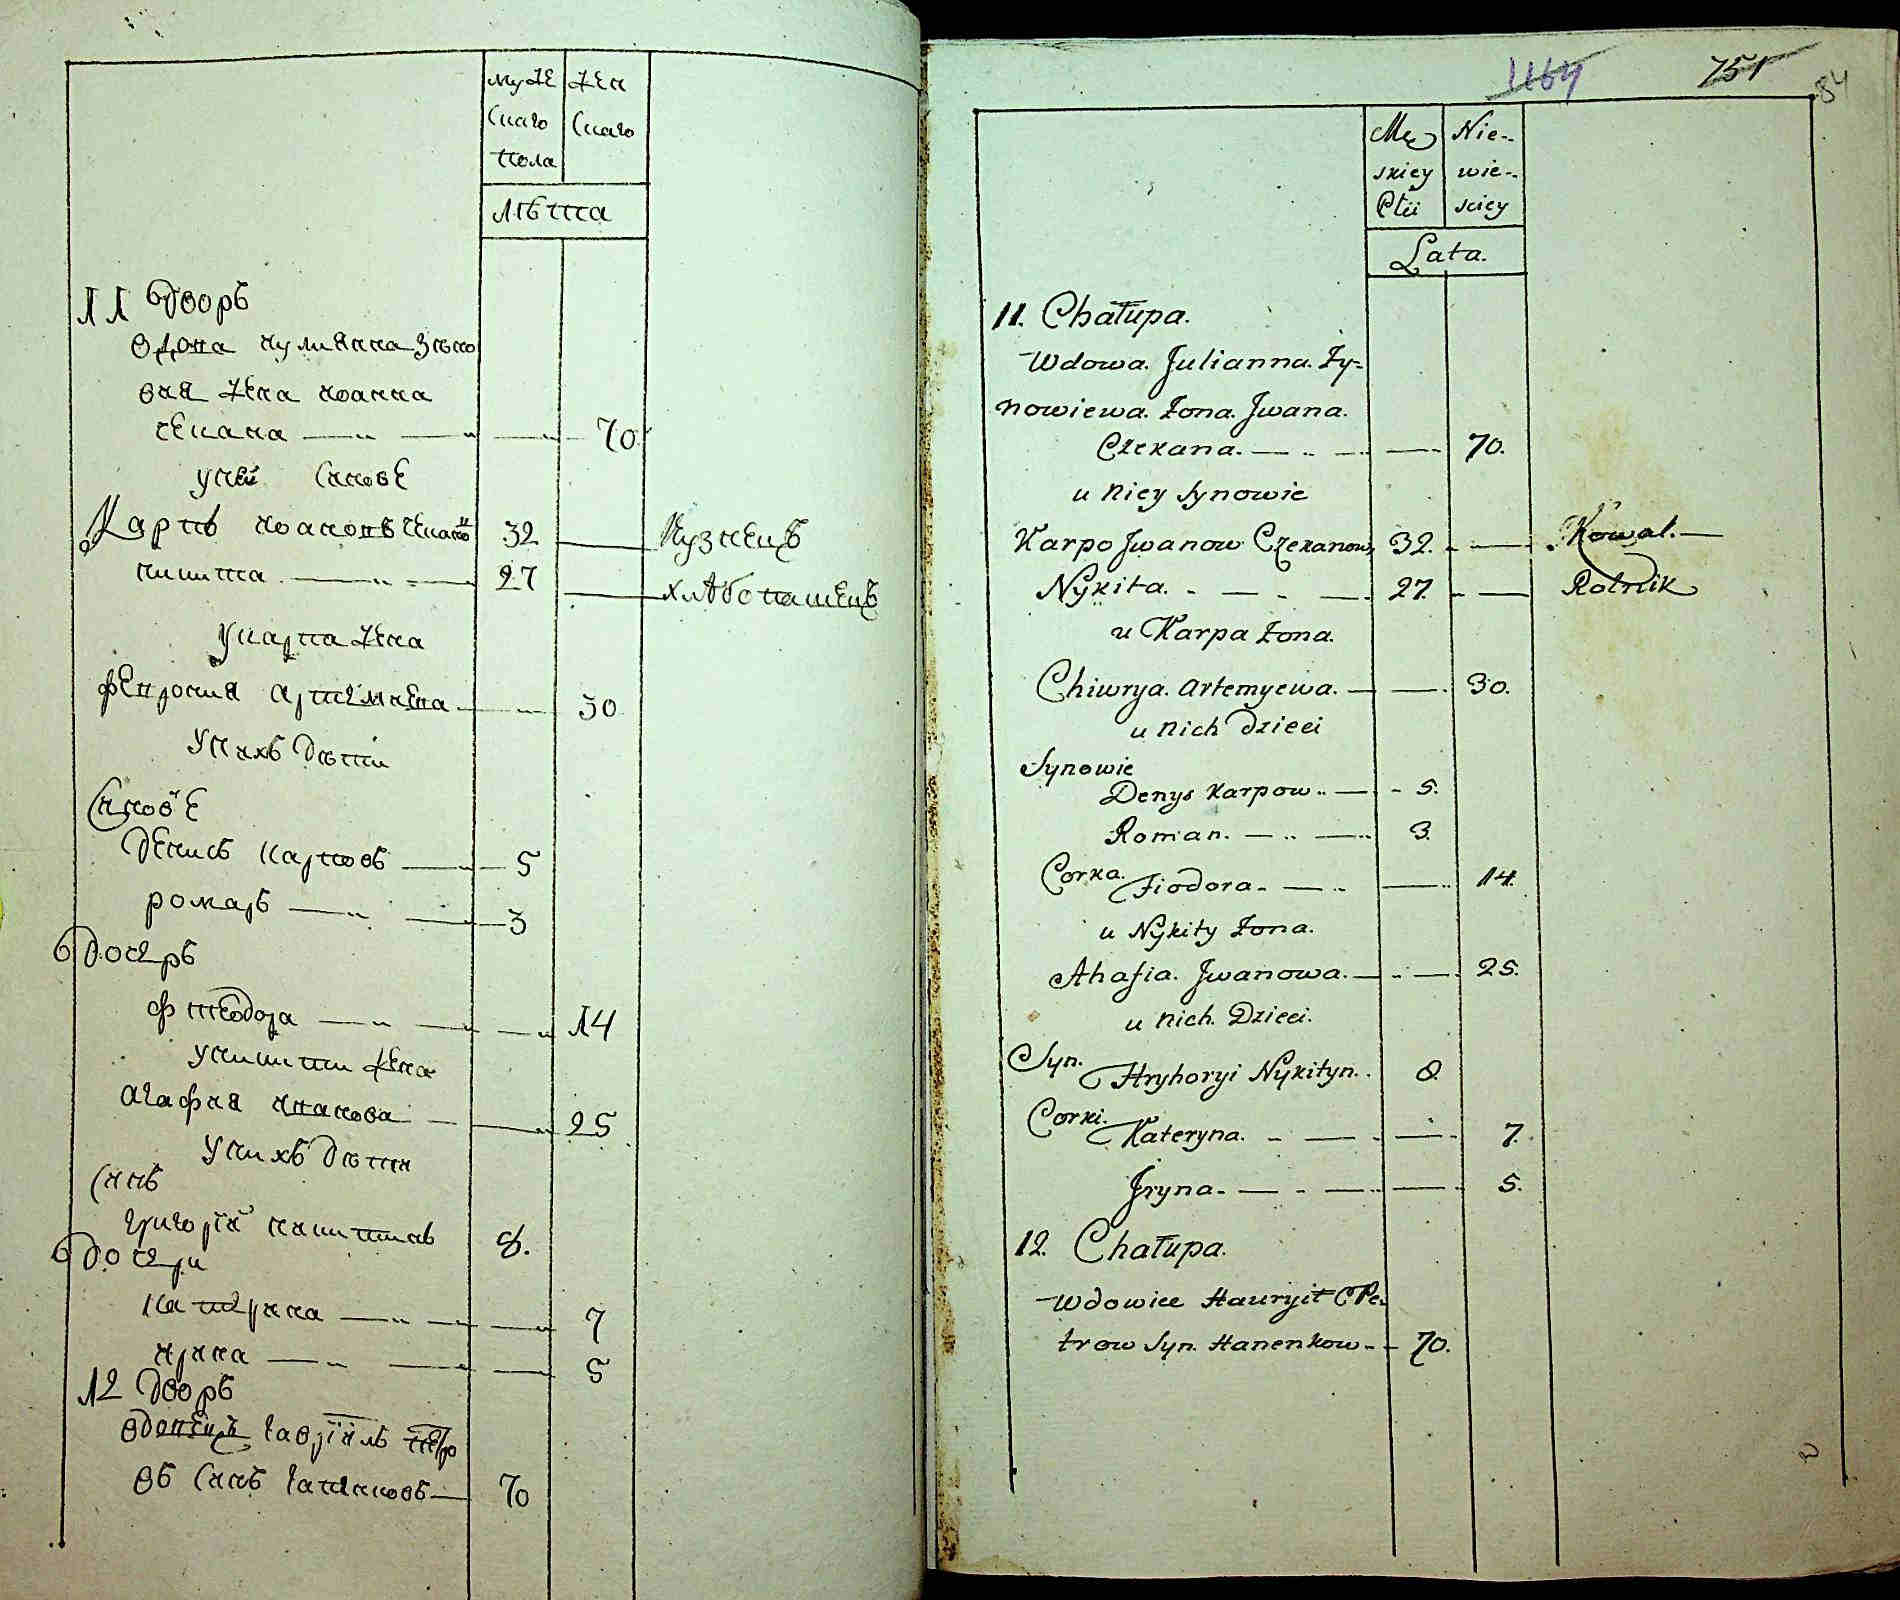 муже
скаго
пола
жен
скаго
лѣта
11 дворъ
вдова иулиянна зѣно
вия жена иоанна
чекана 70
у ней синове
Карпъ иоановъ чекановъ 32 кузнецъ
никита 27 хлѣбопашецъ
у карпа жена
февронія артемиева 30
у нихъ дѣти
синовѣ
денисъ карповъ 5
романъ 3
дочеръ
фтеодора 14
у никити жена
агафия иванова 25
у нихъ дѣти
синъ
григорій никитинъ 8.
дочери
катерина 7
ирина 5
12 дворъ
вдовецъ гавріилъ петро
въ синъ ганенковъ 70
1164 751 84
Mę
skiey
Płci
Nie-
wie-
sciey
Lata.
11. Chałupa.
Wdowa. Julianna. Zy=
nowiewa. żona. Jwana.
Czekana. 70.
u niey synowie
Karpo Jwanow Czekanow 32. Kowal.
Nykita. 27. Rolnik
u Karpa żona.
Chiwrya. Artemyewa. 30.
u nich dzieci
Synowie
Denys Karpow 5.
Roman. 3.
Corka. Fiodora 14.
u Nykity żona.
Ahafia. Jwanowa. 25.
u nich. Dzieci.
Syn. Hryhoryi Nykityn. 8.
Corki. Kateryna. 7.
Jryna. 5.
12. Chałupa.
Wdowiec Hauryił Pe=
trow Syn. Hanenkow 70.